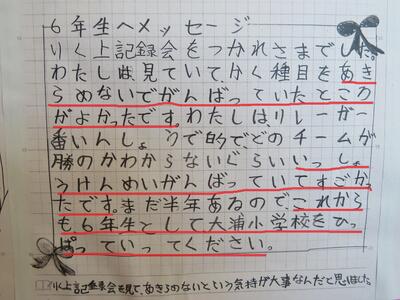 6年生へメッセージ
りく上記録会をつかれさまでした。
わたしは、見ていて、かく種目をあき
らめないでがんばっていたところ
がよかったです。わたしはリレーが一
番いんしょうで的で、どのチームが
勝のかわからないぐらいいっしょ
うけんめいがんばっていてすごかっ
たです。まだ半年あるので、これから
も、6年生として大浦小学校をひっ
ぱっていってください。
りく上記録会を見て、あきらめないという気持が大事なんだと思いました。